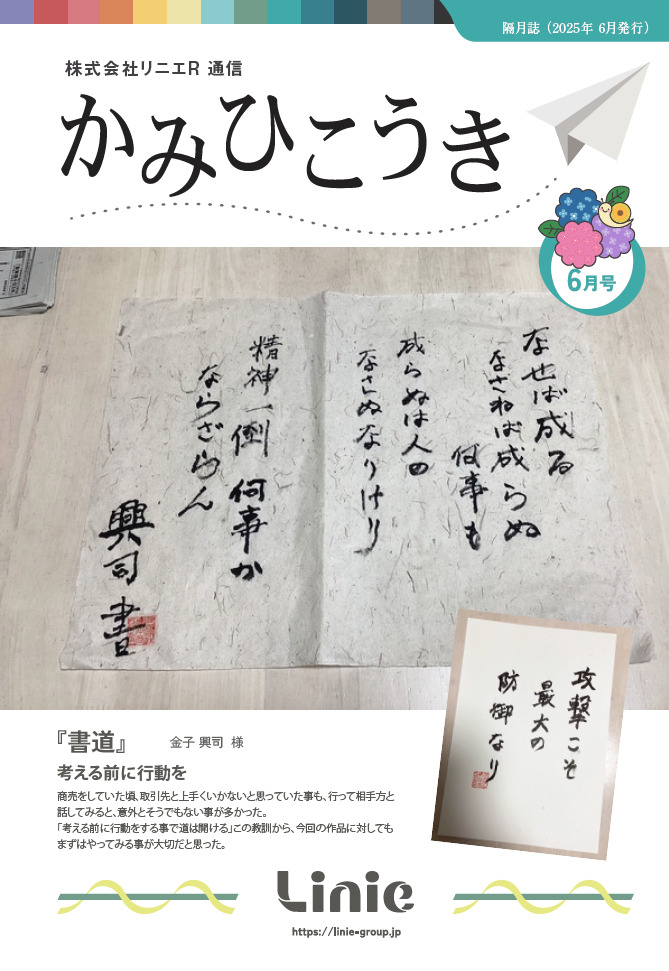 隔月誌（2025年 6月発行）
株式会社リニエR 通信
かみひこうき
6月号
なせば成る
なさねば成らぬ
何事も
成らぬは人の
なさぬなりけり
精神一倒 何事か
ならざらん
興司書
攻撃こそ
最大の
防御なり
『書道』 金子 興司 様
考える前に行動を
商売をしていた頃、取引先と上手くいかないと思っていた事も、行って相手方と
話してみると、意外とそうでもない事が多かった。
「考える前に行動をする事で道は開ける」この教訓から、今回の作品に対しても
まずはやってみる事が大切だと思った。
Linie
https://linie-group.jp